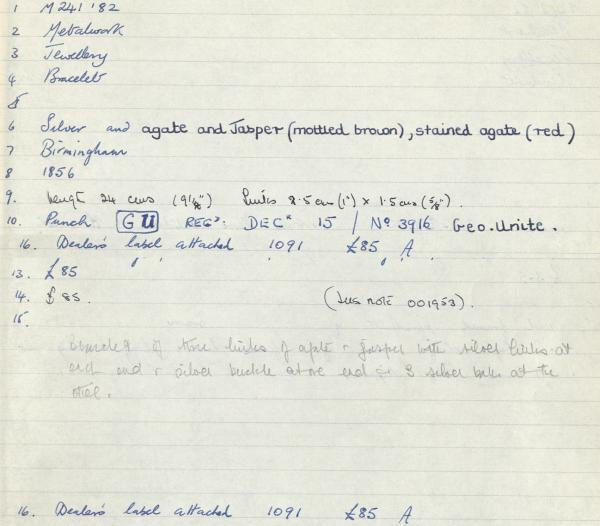 1 M241 '82
2 Metalwork
3 Jewellery
4 Bracelets
5
6 Silver and agate and Jasper (mottled brown), stained agate (red)
7 Birmingham
8 1856
9. Length 24 cms links 2.5 cm (1") x 1.5 cms (5/8").
10. Punch GU REGD. DECR 15 / No 3916 Geo. Unite.
16. Dealer's label attached 1091 £85 A
13. £85
14. £85. (See note 001953).
15.
of three links of agate & jasper with silver links at
each end & silver buckle at one end & 3 silver at the
other.
16. Dealer's label attached 1091 £85 A